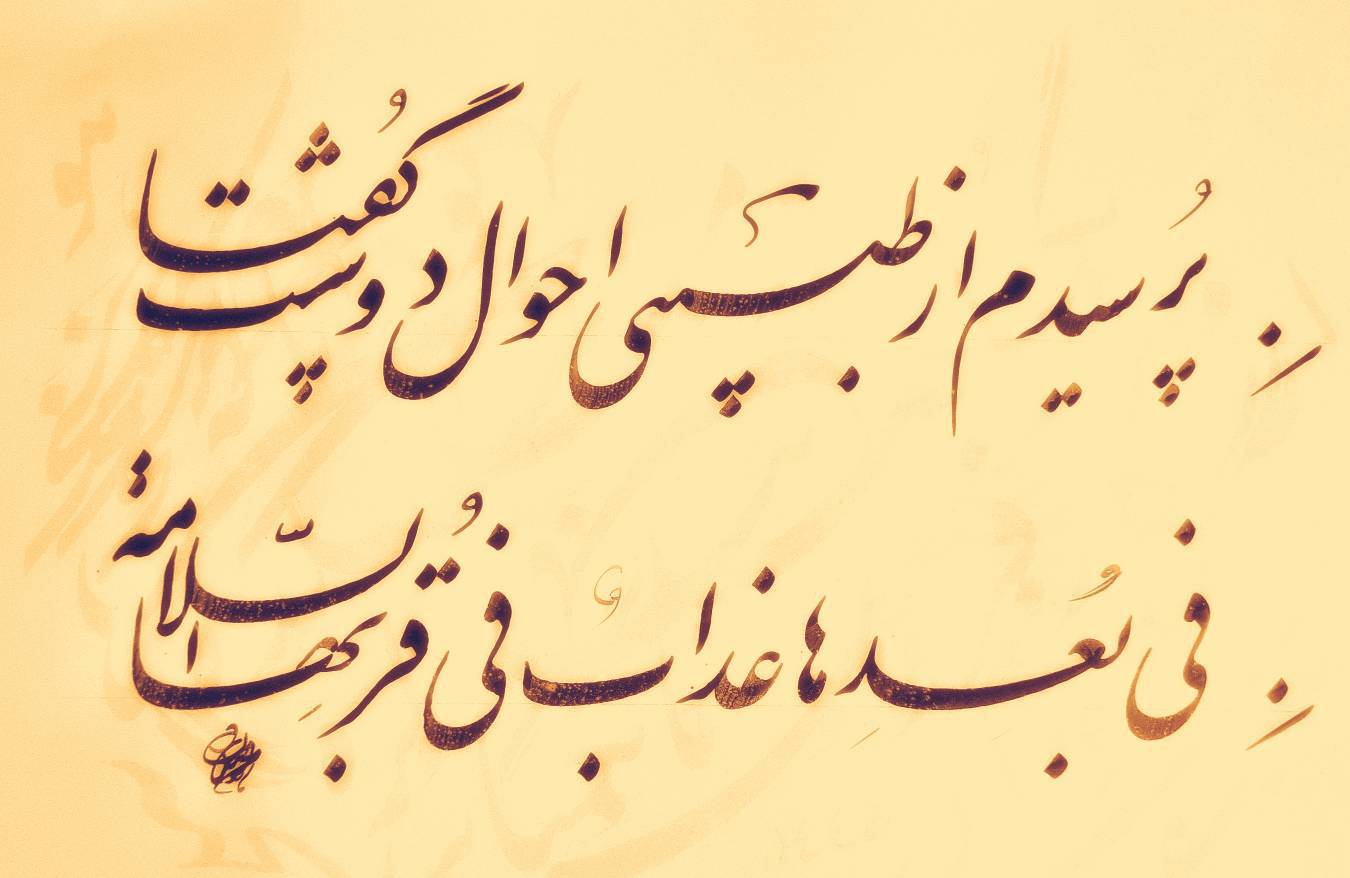 پُرسیدم از طبیبی احوال دوست گفُتا
فی بُعدِها عذابٌ فی قُربِها السّلامة